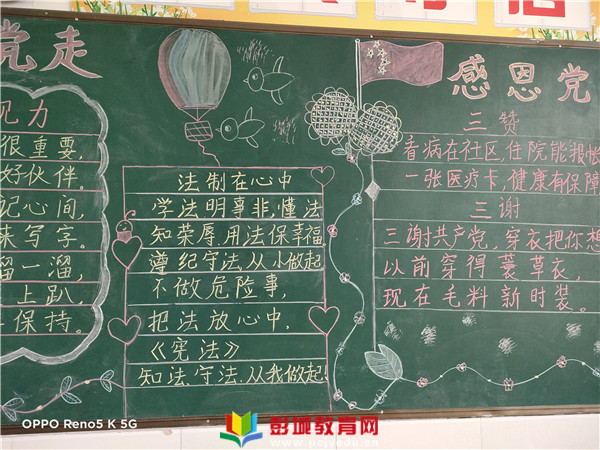 党走
视力
很重要，
好伙伴。
记心间，
来写字。
溜一溜，
上趴，
保持。
法制在心中
学法明事非，懂法
知荣辱，用法保幸福，
遵纪守法，从小做起，
不做危险事，
把法放心中，
《宪法》
知法、守法、从我做起！
感恩党
三赞
看病在社区，住院能报帐
一张医疗卡，健康有保障
三谢
三谢共产党，穿衣把你想
以前穿得蓑草衣，
现在毛料新时装。
OPPO Reno5 K 5G
彭城教育网
www.pcjyedu.cn